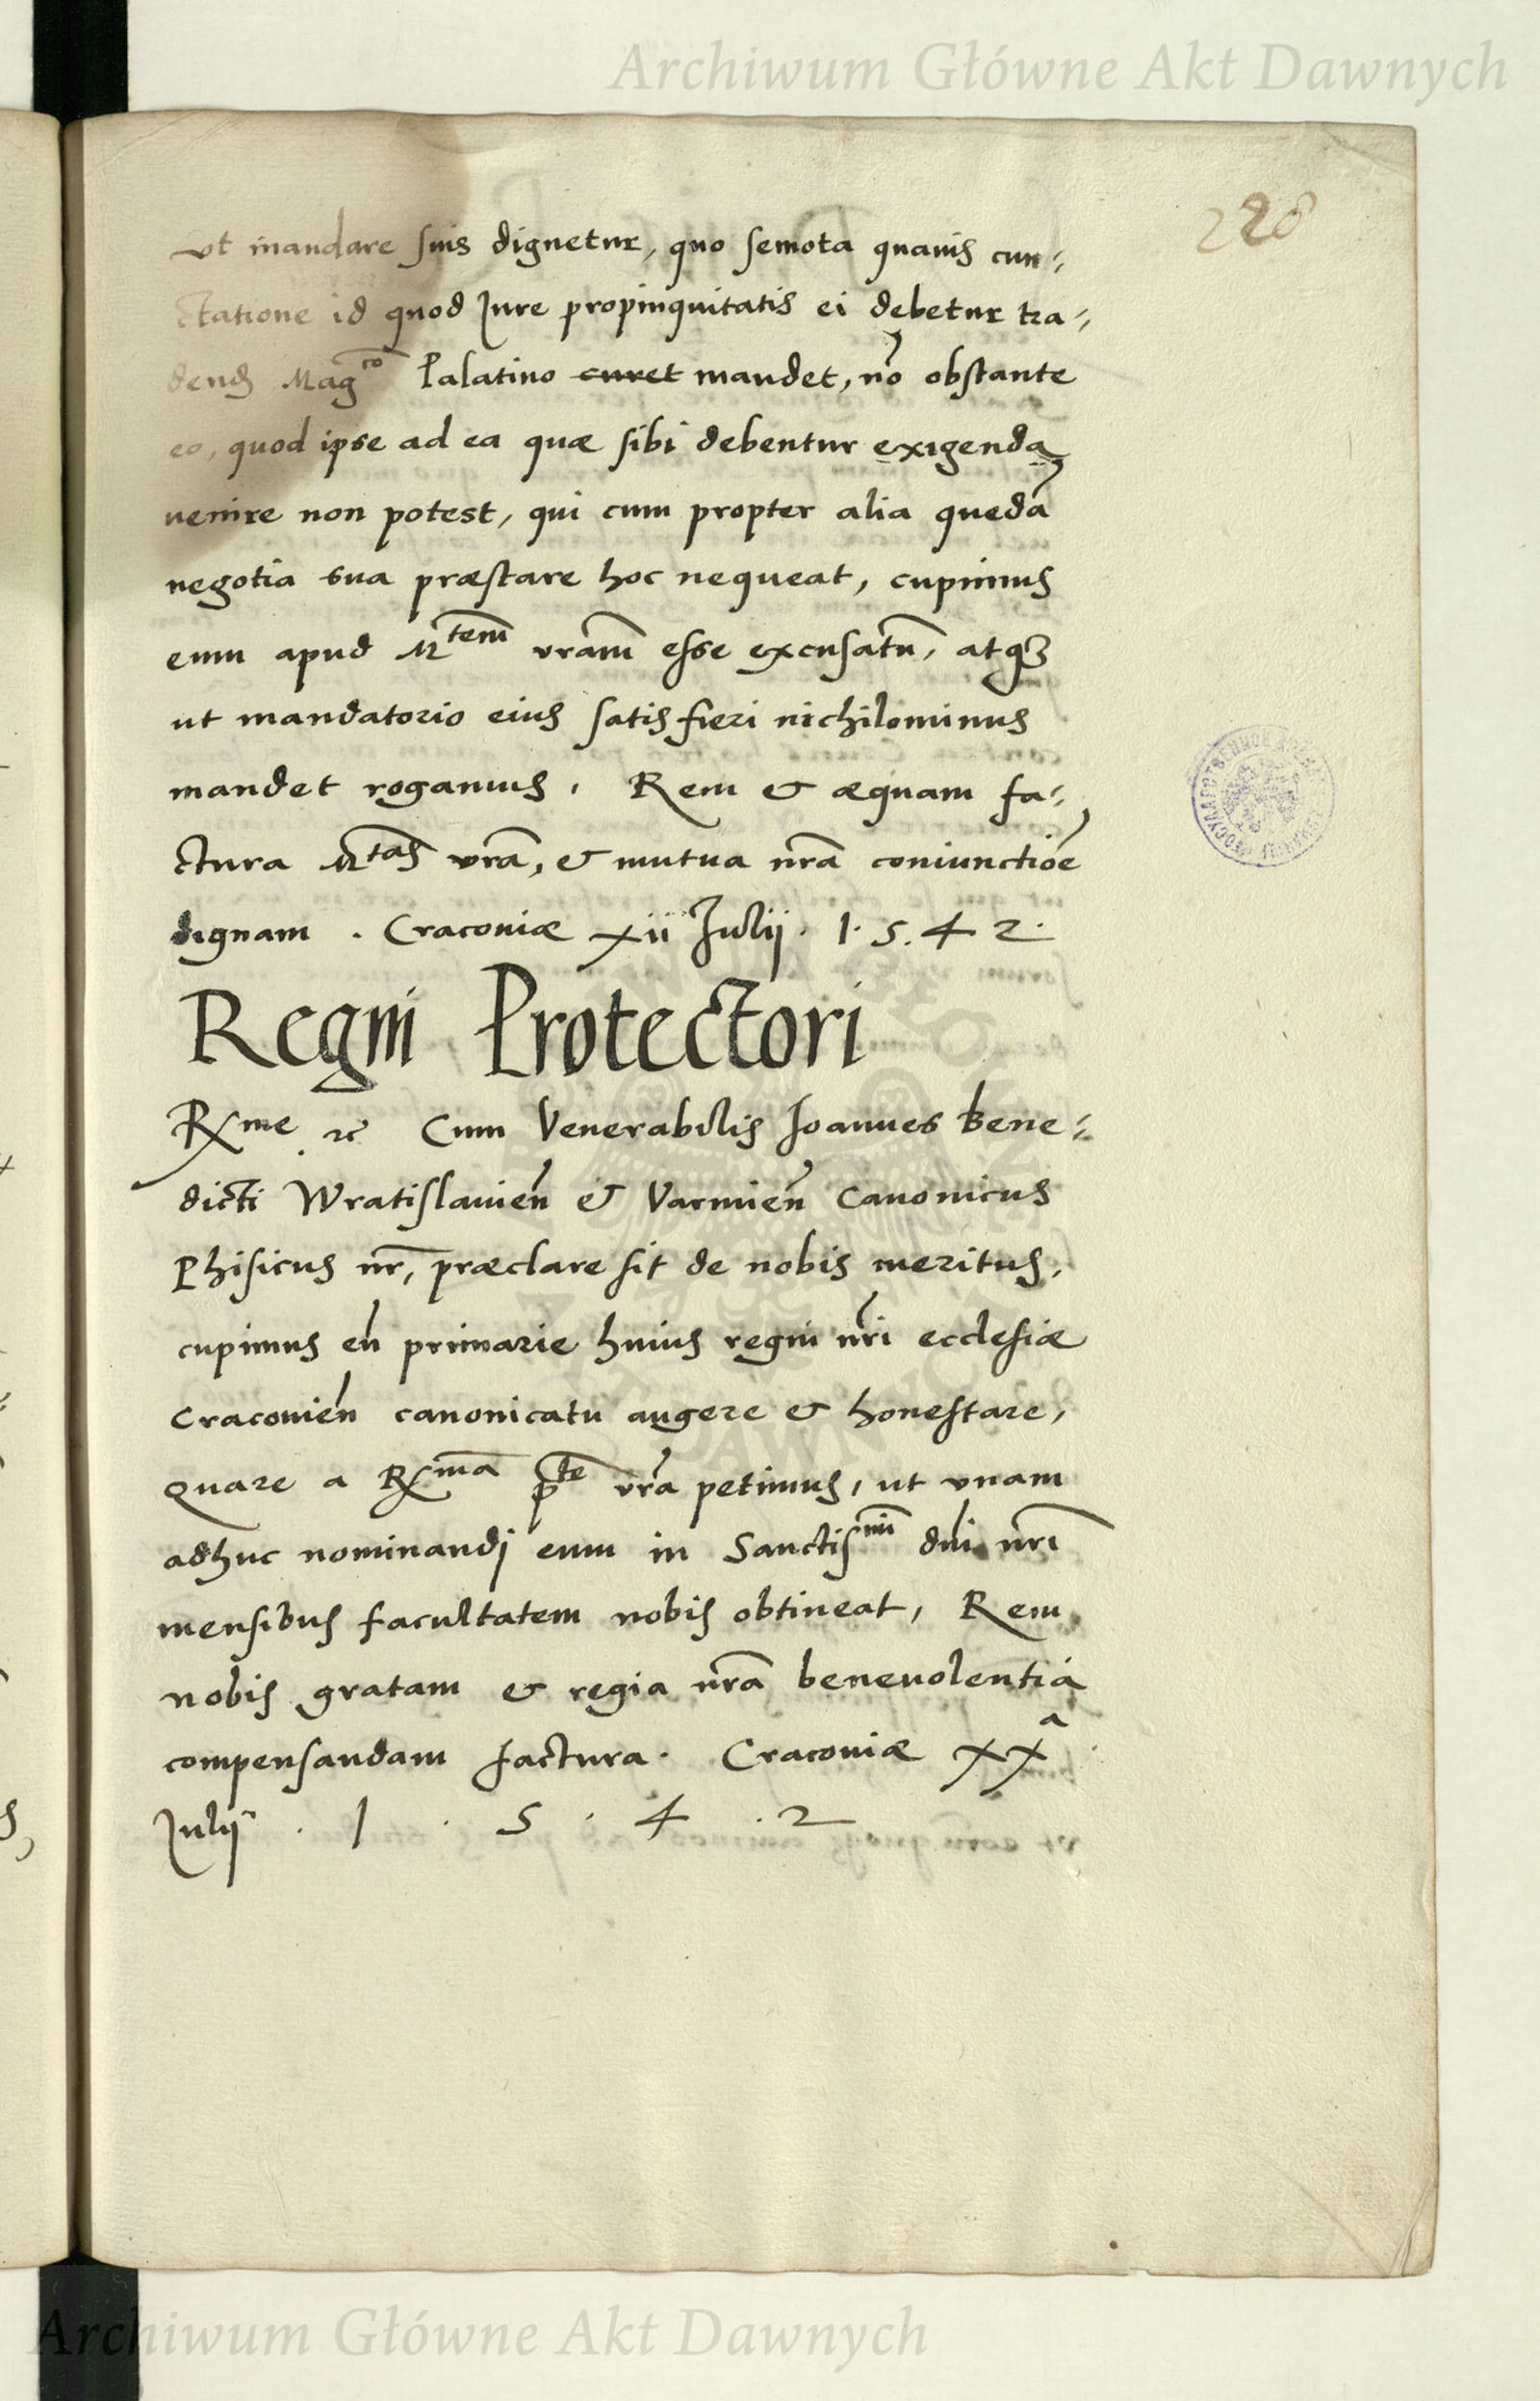 Archiwum Główne Akt Dawnych
228
ut mandare suis dignetur, quo semota quavis cun-
ctatione id quod Jure propinquitatis ei debetur tra-
dend Mag^co Palatino curet mandet, nõ obstante
eo, quod ipse ad ea quæ sibi debentur exigenda
venire non potest, qui cum propter alia quedã
negotia sua præstare hoc nequeat, cupimus
eum apud M^tem vram̃ esse excusatũ, atq3
ut mandatorio eius satisfieri nichilominus
mandet rogamus. Rem & æquam fa-
ctura M^tas vrã, & mutua nrã coniunctiõe
dignam. Craconiæ xii Julij. 1. 5. 4 2.
Regni Protectori
R^me. &c Cum Venerabilis Joannes Bene-
dicti Wratislavieñ & Varmieñ Canonicus
Phisicus nr̃, præclare sit de nobis meritus,
cupimus eũ primarie huius regni nr̃i ecclesiæ
Cracovieñ canonicatu augere & honestare,
Quare a R^ma p^te vrã petimus, ut unam
adhuc nominandj eum in Sanctiss^mi dñi nrĩ
mensibus facultatem nobis obtineat, Rem
nobis gratam & regia nrã benevolentiã
compensandam factura. Cracoviæ xx^a
Julij. 1. 5. 4. 2
Archiwum Główne Akt Dawnych